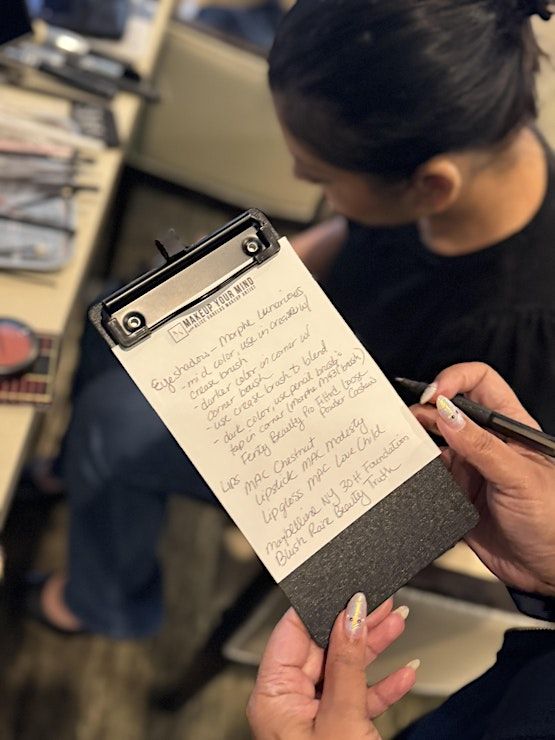 MAKEUP YOUR MIND
MAKEUP ARTIST
Eyeshadow - Morphe Luxurious
- mid color, use in crease w/
crease brush
- darker color in corner w/
corner brush
- use crease brush to blend
- dark color, use pencil brush
tap in corner (morphe M431 brush)
Fenty Beauty Pro Filt'r Loose
Powder Cashew
Lips MAC Chestnut
Lipstick MAC Modesty
Lipgloss MAC Love Child
Maybelline NY 30H Foundation
Blush Rare Beauty Truth